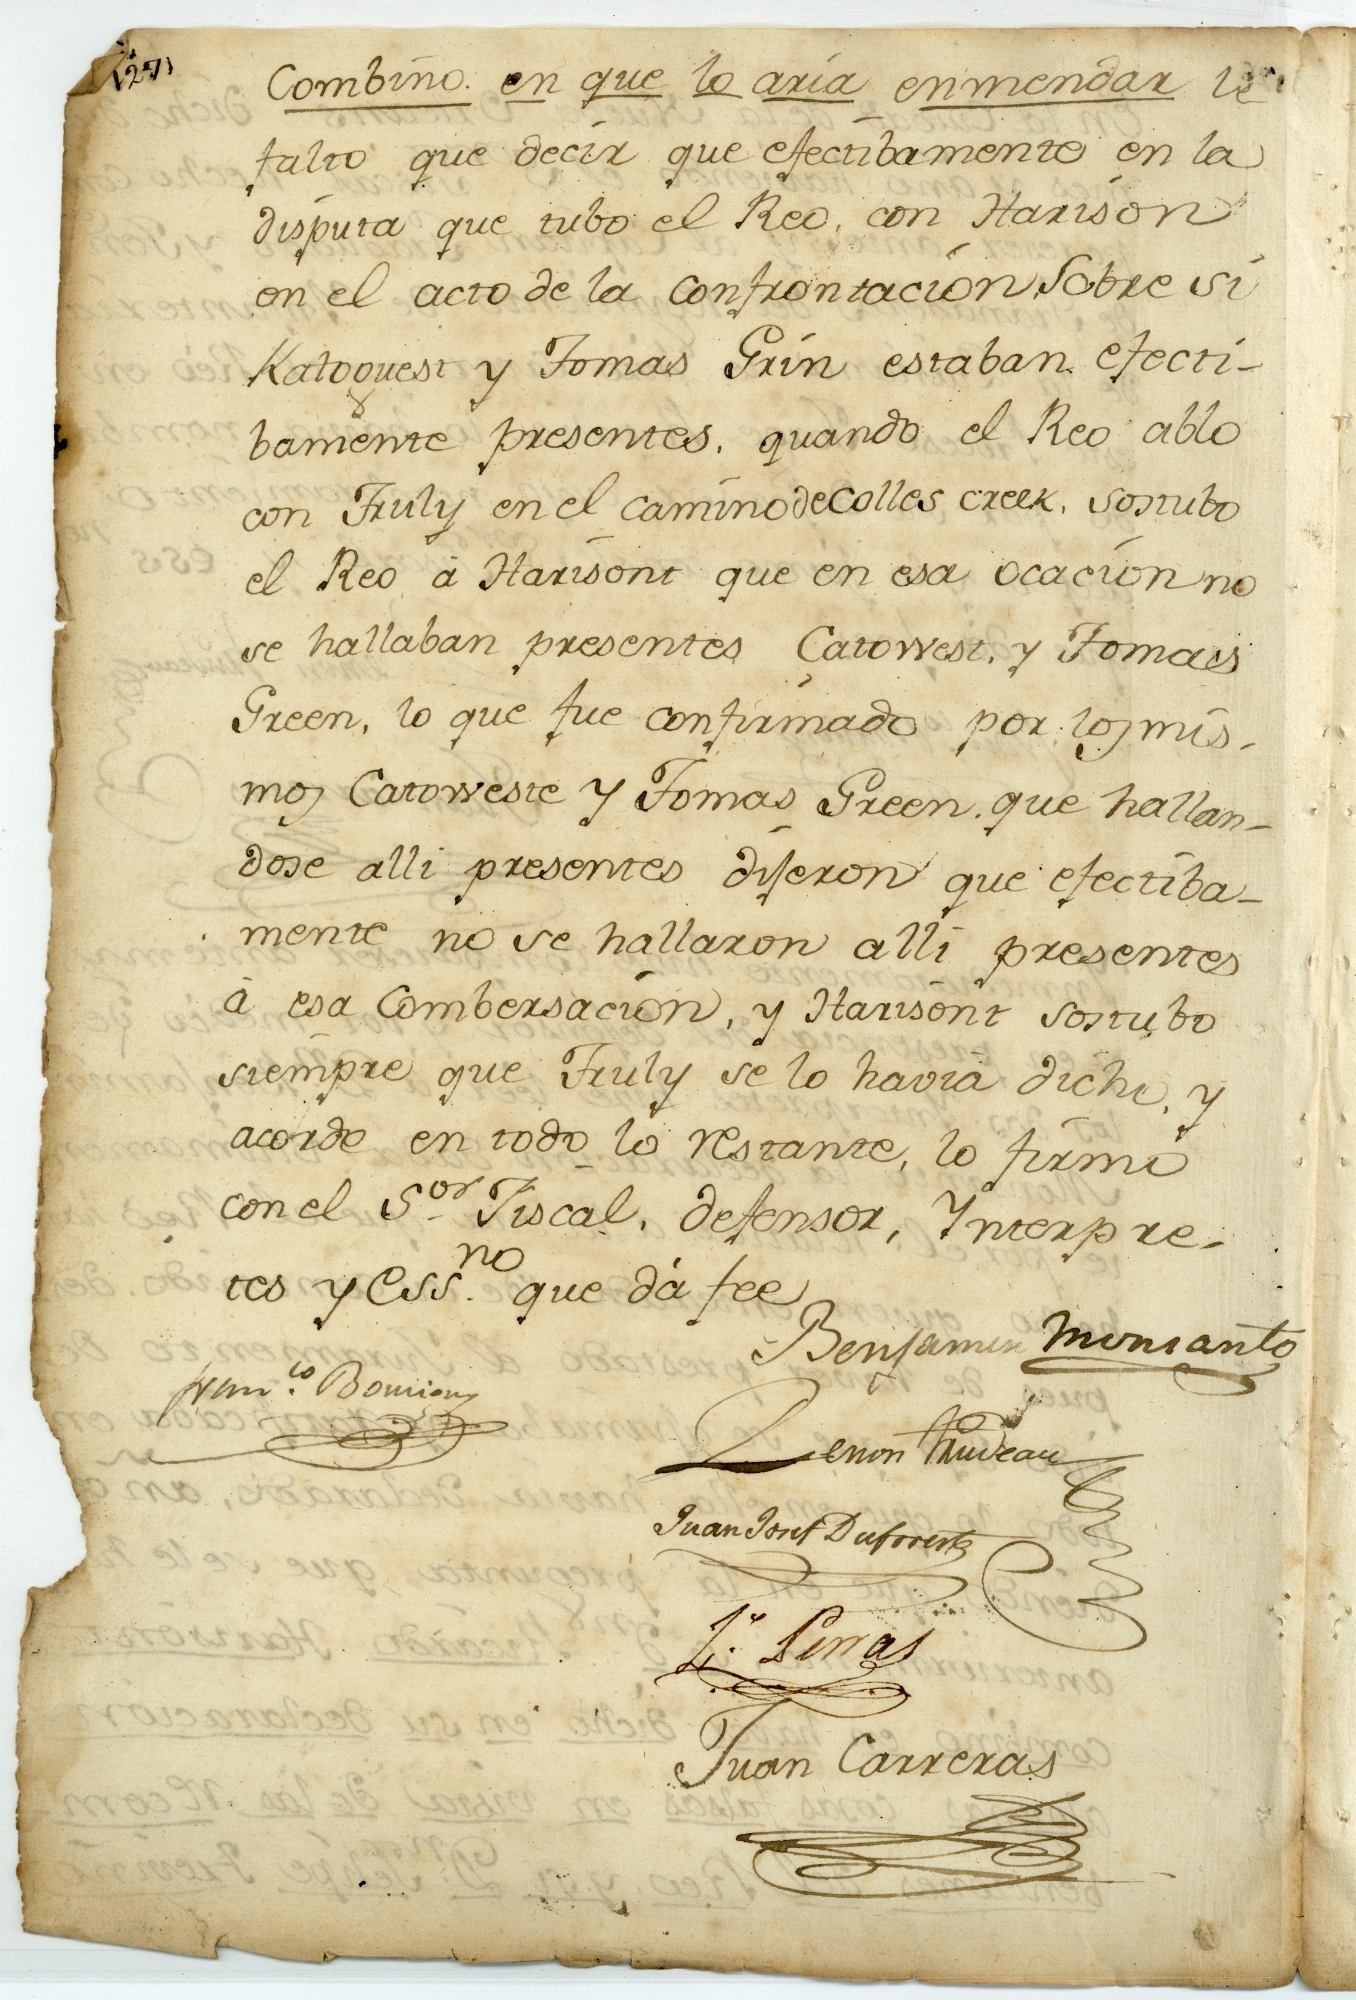 (27)
Combino. en que lo aria enmendar le
falto que decir que efectibamente en la
disputa que tubo el Reo, con Harison
en el acto de la Confrontacion, Sobre si
Katoguest y Tomas Grin estaban efecti-
bamente presentes, quando el Reo ablo
con Truly en el camino de Colles creek, sostubo
el Reo à Harisont que en esa ocacion no
se hallaban presentes Catowest, y Tomas
Green, lo que fue confirmado por los mis-
mos Catoweste y Tomas Green, que hallan-
dose alli presentes dijeron que efectiba-
mente no se hallaron alli presentes
à esa Combersacion, y Harisont sostubo
siempre que Truly se lo havia dicho, y
acorde en todo lo restante, lo firmó
con el S.or Fiscal, defensor, Interpre-
tes y Ess.no que dà fee
Benjamin Monsanto
Fran.co Bouligny
Zenon Trudeau
Juan Josef Duforest
Perras
Juan Carreras